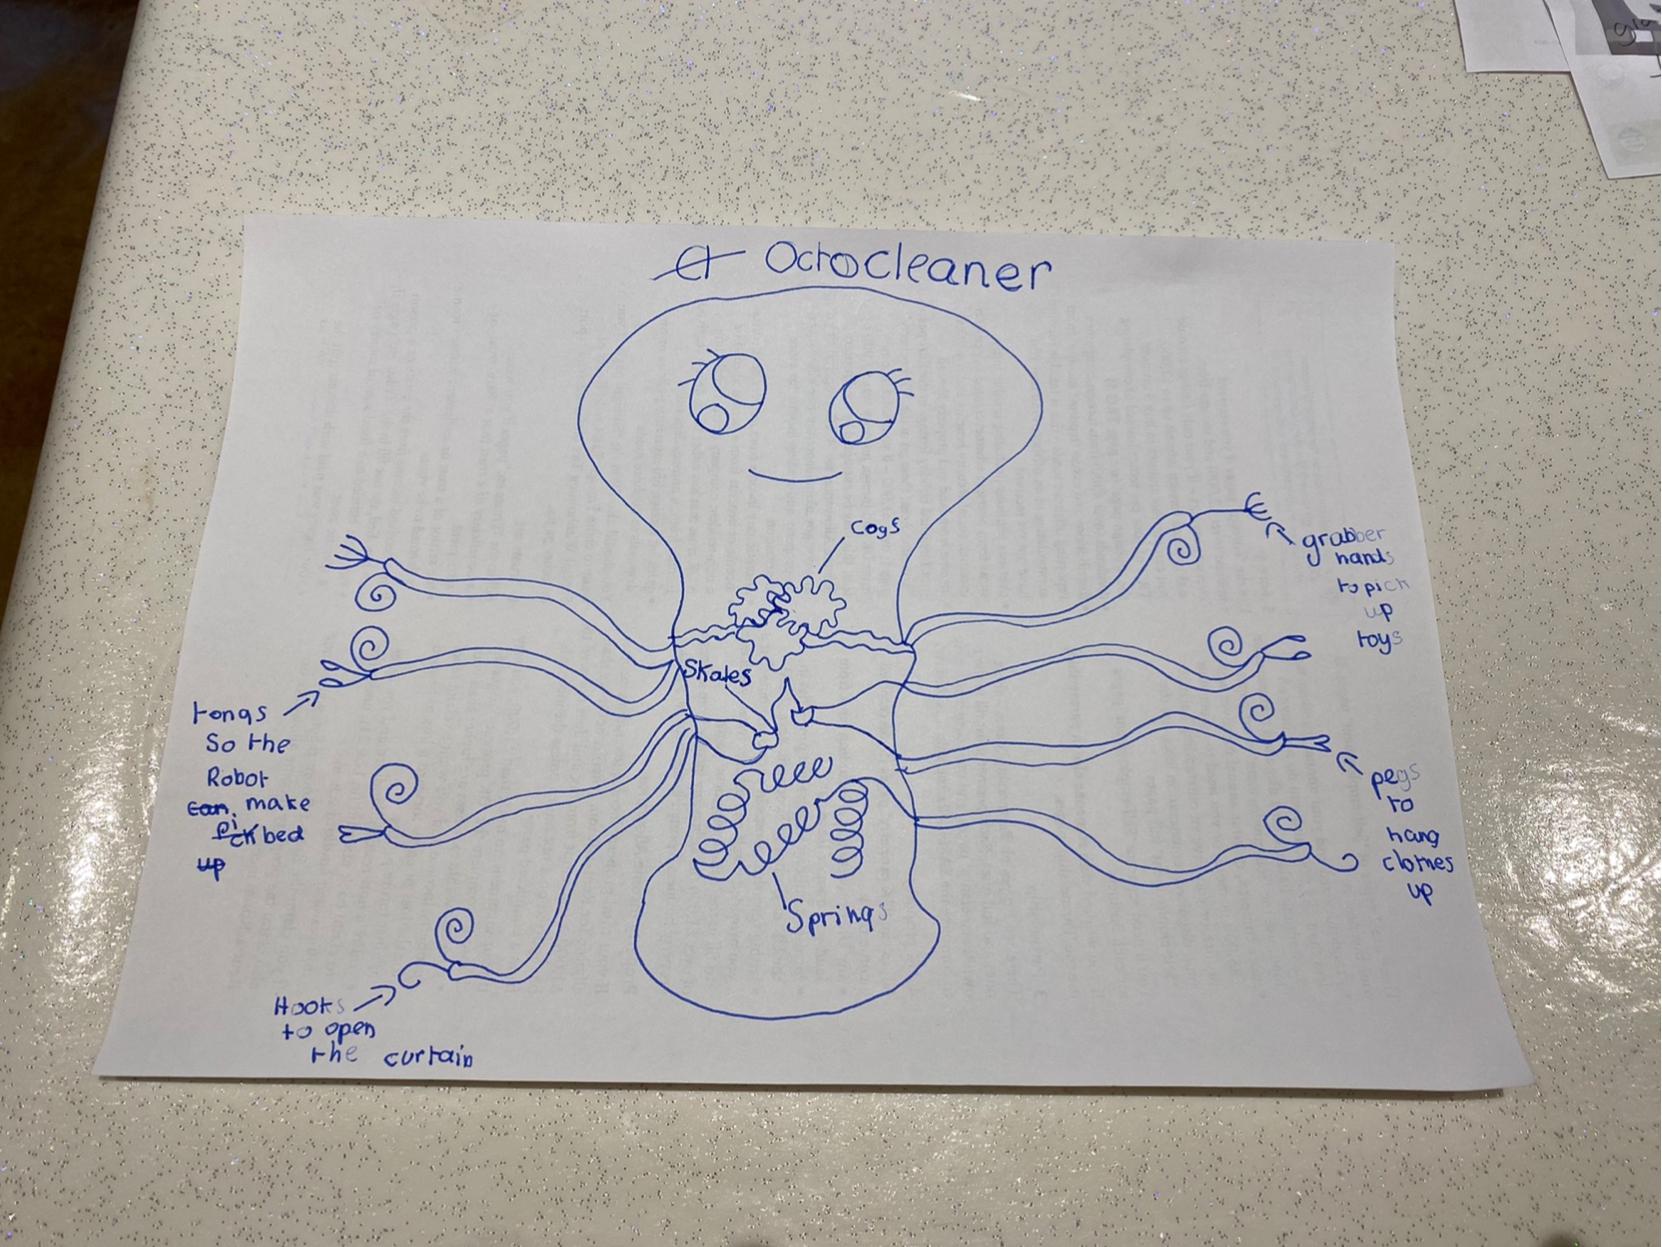 Octocleaner
cogs
grabber
hands
to pick
up
toys
Skates
tongs
So the
Robot
can make
pick bed
up
pegs
to
hang
clothes
up
Springs
Hooks
to open
the curtain